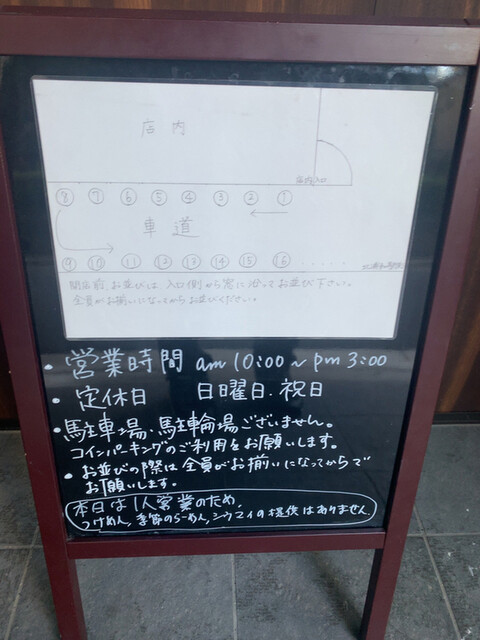 店内
店内入口
⑧ ⑦ ⑥ ⑤ ④ ③ ② ①
車道
⑨ ⑩ ⑪ ⑫ ⑬ ⑭ ⑮ ⑯ ・・・・・
開店前、お並びは、入口側から窓に沿ってお並び下さい。
全員がお揃いになってからお並びください。
・営業時間 am 10:00～pm 3:00
・定休日 日曜日.祝日
・駐車場、駐輪場ございません。
コインパーキングのご利用をお願いします。
・お並びの際は全員がお揃いになってからで
お願いします。
本日は1人営業のため、
つけめん、季節のらーめん、シウマイの提供はありません。